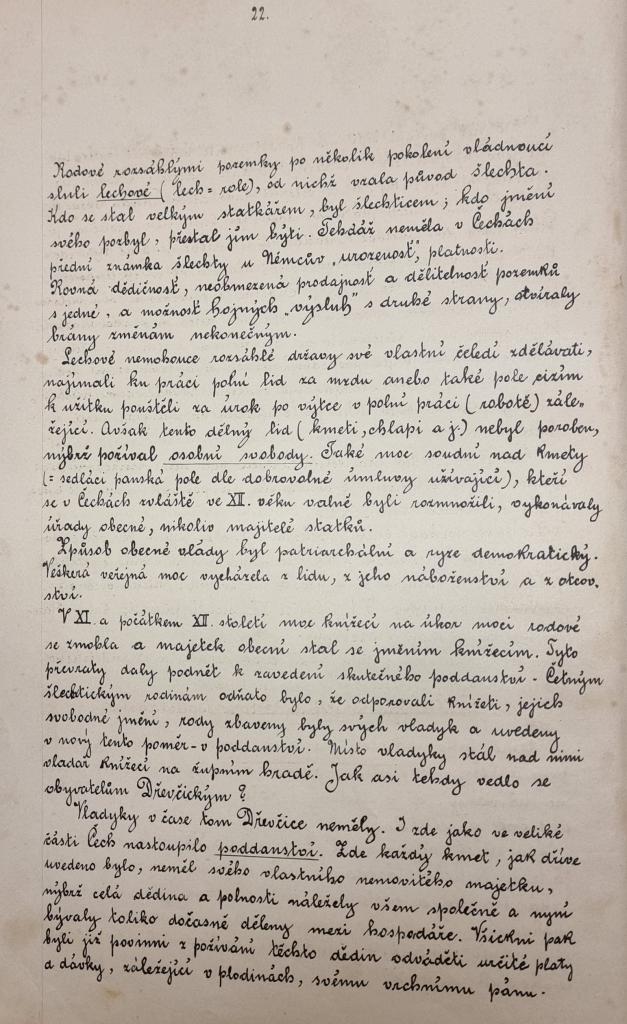 22.
Rodové rozsáhlými pozemky po několik pokolení vládnoucí
sluli lechové (lech = role), od nichž vzala původ šlechta.
Kdo se stal velkým statkářem, byl šlechticem; kdo jmění
svého pozbyl, přestal jím býti. Tehdáž neměla v Čechách
přední známka šlechty u Němcův „urozenosť", platnosti.
Rovná dědičnosť, neobmezená prodajnosť a dělitelnosť pozemků
s jedné, a možnosť hojných „výsluh" s druhé strany, otvíraly
brány změnám nekonečným.
Lechové nemohouce rozsáhlé državy své vlastní čeledí zdělávati,
najímali ku práci polní lid za mzdu anebo také pole cizím
k užitku pouštěli za úrok po výtce v polní práci (robotě) zále-
žející. Avšak tento dělný lid (kmeti, chlapi a j.) nebyl poroben,
nýbrž požíval osobní svobody. Také moc soudní nad kmety
(= sedláci panská pole dle dobrovolné úmluvy užívající), kteří
se v Čechách zvláště ve XII. věku valně byli rozmnožili, vykonávaly
úřady obecné, nikoliv majitelé statků.
Způsob obecné vlády byl patriarchální a ryze demokratický.
Veškerá veřejná moc vycházela z lidu, z jeho náboženství a z otcov.
ství.
V XI. a počátkem XII. století moc knížecí na úkor moci rodové
se zmohla a majetek obecní stal se jměním knížecím. Tyto
převraty daly podnět k zavedení skutečného poddanství. Četným
šlechtickým rodinám odňato bylo, že odporovali knížeti, jejich
svobodné jmění, rody zbaveny byly svých vladyk a uvedeny
v nový tento poměr - v poddanství. Místo vladyky stál nad nimi
vladař knížecí na župním hradě. Jak asi tehdy vedlo se
obyvatelům Dřevčickým?
Vladyky v čase tom Dřevčice neměly. I zde jako ve veliké
části Čech nastoupilo poddanství. Zde každý kmet, jak dříve
uvedeno bylo, neměl svého vlastního nemovitého majetku,
nýbrž celá dědina a polnosti náležely všem společně a nyní
bývaly toliko dočasně děleny mezi hospodáře. Všickni pak
byli již povinni z požívání těchto dědin odváděti určité platy
a dávky, záležející v plodinách, svému vrchnímu pánu.